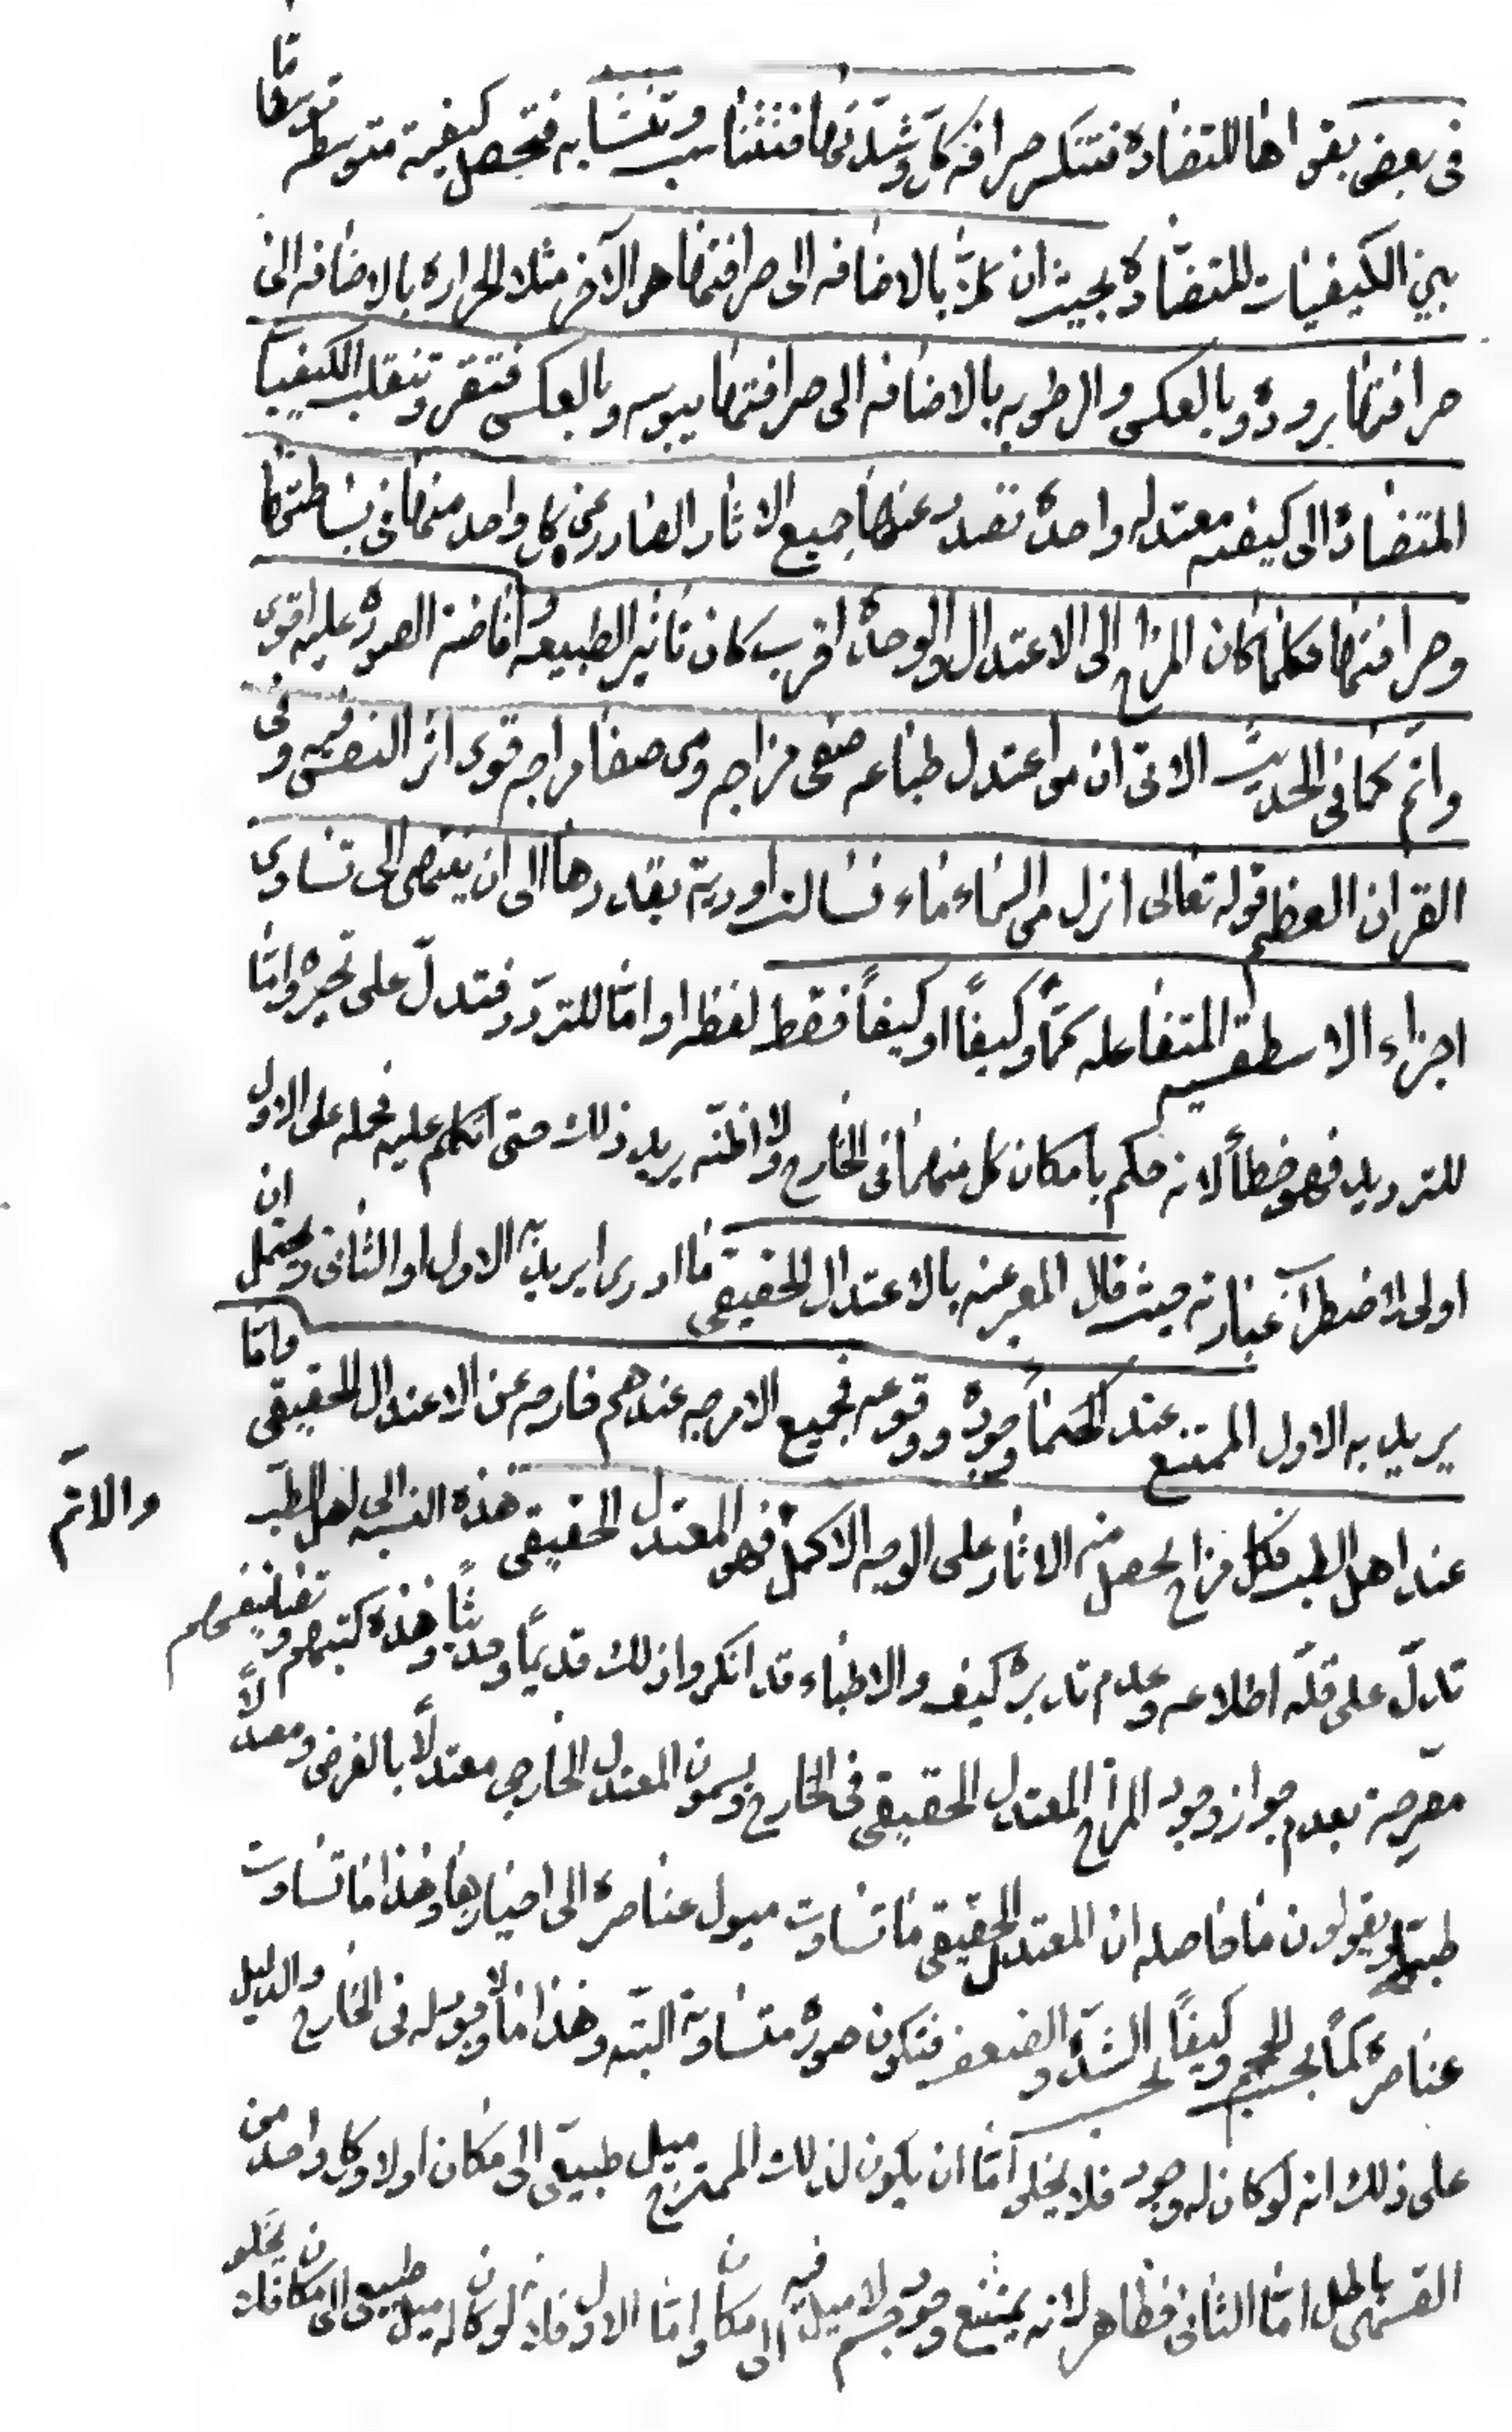 في بعض بقواها المتضادة فتنكسر صرافة كل وشدتها فتتناسب وتتشابه فتحصل كيفية متوسطة توسطا ما
بين الكيفيات المتضادة بحيث ان كلا بالاضافه الى صرافتها هو الآخر مثلا الحرارة بالاضافه الى
صرافتها برودة وبالعكس والرطوبه بالاضافه الى صرافتها يبوسه وبالعكس فتقر وتنقلب الكيفيات
المتضادة الى كيفيه معتدله واحدة تصدر عنها جميع الاثار الصادر عن كل واحد منها في بساطتها
وصرافتها فكلما كان المزاج الى الاعتدال والوحدة اقرب كان تاثير الطبيعه وافاضة الصورة عليه اقوى
واتم كما في الحديث الاتى ان من اعتدل طباعه صفى مزاجه ومن صفا مزاجه قوى اثر النفس فيه وفى
القران العظيم قوله تعالى انزل من السماء ماء فسالت اودية بقدرها الى ان ينتهى الى تساوى
اجزاء الاسطقسيه المتفاعله كمّاً وكيفاً او كيفاً فقط لفظه او امّا للتردّد فتدلّ على تحيره وامّا
للترديد فهو خطأ لانه حكم بامكان كل منهما فى الخارج ولا اظنّه يريد ذلك حتى اتكلم عليه فحمله على الاول
اولى لاضطراب عبارته حيث قال المعبر عنه بالاعتدال الحقيقى ما ادرى ايريد به الاول او الثانى ويحتمل ان
يريد به الاول الممتنع عند الحكماء وجوده ووقوعه فجميع الامزجه عندهم خارجه عن الاعتدال الحقيقى وامّا
عند اهل الطب فكل مزاج يحصل منه الاثار على الوجه الاكمل والاتم فهو المعتدل الحقيقى هذه النسبه الى اهل الطبّ
تدلّ على قلّه اطلاعه وعدم تدبره كيف والاطباء قد انكروا ذلك قديمًا وحديثًا وهذه كتبهم وتصانيفهم
مصرّحة بعدم جواز وجود المزاج المعتدل الحقيقى فى الخارج ويسمون المعتدل الخارجى معتدلًا بالفرض ومعتدلًا
طبيّا ويقولون ما حاصله ان المعتدل الحقيقى ما تساوت ميول عناصره الى احيازها وهذا ما تساوت
عناصره كمّاً بحسب الحجم وكيفاً بحسب الشدّة والضعف فتكون صوره متساوية البتّه وهذا ممّا لا وجود له فى الخارج والدليل
على ذلك انه لو كان له وجود فلا يخلو امّا ان يكون لذلك الممتزج ميل طبيعى الى مكان اولا وكل واحد من
القسمين باطل امّا الثانى فظاهر لانه يمتنع وجود جسم لا ميل فيه الى مكان وامّا الاول فلانه لو كان له ميل طبيعى الى مكان فلا يخلو